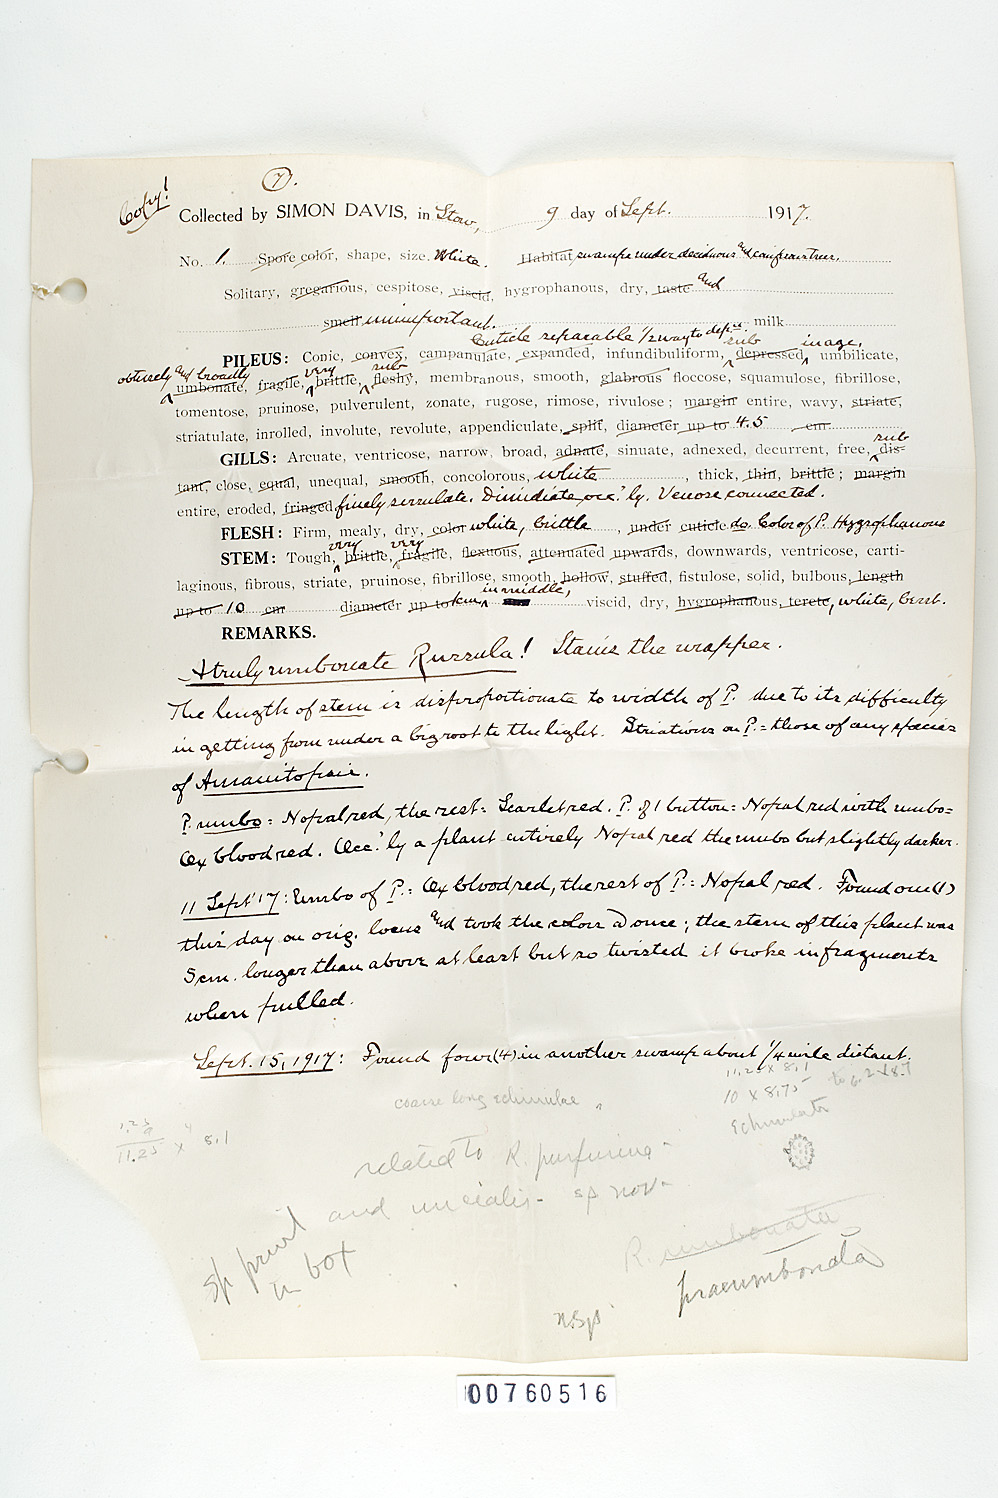 7.
Copy!
Collected by SIMON DAVIS, in Stow, 9 day of Sept. 1917.
No. 1. Spore color, shape, size. White. Habitat swamps under deciduous and coniferous trees.
Solitary, gregarious, cespitose, viscid, hygrophanous, dry, taste and
smell unimportant. milk
Cuticle separable 1/2 way to
PILEUS: Conic, convex, campanulate, expanded, infundibuliform, sub depressed, in age, umbilicate,
obtusely and broadly umbonate, fragile, very brittle, sub fleshy, membranous, smooth, glabrous floccose, squamulose, fibrillose,
tomentose, pruinose, pulverulent, zonate, rugose, rimose, rivulose; margin entire, wavy, striate,
striatulate, inrolled, involute, revolute, appendiculate, split, diameter up to 4.5 cm
GILLS: Arcuate, ventricose, narrow, broad, adnate, sinuate, adnexed, decurrent, free, sub dis-
tant, close, equal, unequal, smooth, concolorous, white , thick, thin, brittle; margin
entire, eroded, fringed finely serrulate. Dimidiate occ.'ly. Venose connected.
FLESH: Firm, mealy, dry, color white, brittle , under cuticle do. Color of P. Hygrophanous
STEM: Tough, very brittle, very fragile, flexuous, attenuated upwards, downwards, ventricose, carti-
laginous, fibrous, striate, pruinose, fibrillose, smooth, hollow, stuffed, fistulose, solid, bulbous, length
up to 10 cm diameter up to 1 cm in middle, viscid, dry, hygrophanous, terete, white,
REMARKS.
A truly umbonate Russula! Stains the wrapper.
The length of stem is disproportionate to width of P. due to its difficulty
in getting from under a big root to the light. Striations on P. = those of any species
of Amanitopsis.
P. umbo = Nopal red, the rest = Scarlet red. P. of 1 button = Nopal red with umbo =
Ox blood red. Occ.'ly a plant entirely Nopal red the umbo but slightly darker.
11 Sept '17: Umbo of P. = Ox blood red, the rest of P. = Nopal red. Found one (1)
this day on orig. locus and took the colors @ once; the stem of this plant was
5 cm. longer than above at least but so twisted it broke in fragments
when pulled.
Sept. 15, 1917: Found four (4) in another swamp about 1/4 mile distant.
11.25 x 8.1
10 x 8.75 to 6.2 x 8.7
coarse long echinulae
Echinulate
1.25
9
11.25 x 8.1
related to R. purpurina
and uncialis - sp nov-
sp print
in box
R. umbonata
praeumbonata
n.sp.
00760516